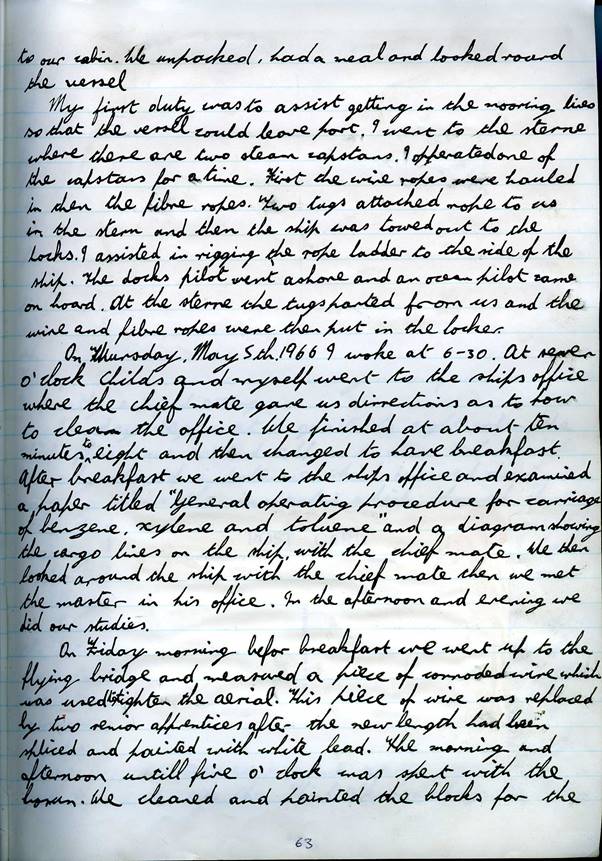 to our cabin. We unpacked, had a meal and looked round
the vessel
My first duty was to assist getting in the mooring lines
so that the vessel could leave port. I went to the sterne
where there are two steam capstans. I opperated one of
the capstans for a time. First the wire ropes were hauled
in then the fibre ropes. Two tugs attached rope to us
in the stern and then the ship was towed out to the
locks. I assisted in rigging the rope ladder to the side of the
ship. The docks pilot went ashore and an ocean pilot came
on board. At the sterne the tugs parted from us and the
wire and fibre ropes were then put in the locker.
On Thursday, May 5th. 1966 I woke at 6-30. At seven
O'clock Childs and myself went to the ships office
where the chief mate gave us dirrections as to how
to clean the office. We finished at about ten
minutes to eight and then changed to have breakfast.
After breakfast we went to the ships office and examined
a paper titled "General operating procedure for carriage
of benzene, xylene and toluene" and a diagram showing
the cargo lines on the ship, with the chief mate. We then
looked around the ship with the chief mate then we met
the master in his office. In the afternoon and evening we
did our studies.
On Friday morning befor breakfast we went up to the
flying bridge and measured a piece of corroded wire which
was used to tighten the aerial. This piece of wire was replaced
by two senior apprentices after the new length had been
spliced and painted with white lead. The morning and
afternoon untill five O'clock was spent with the
bosun. We cleaned and painted the blocks for the
63